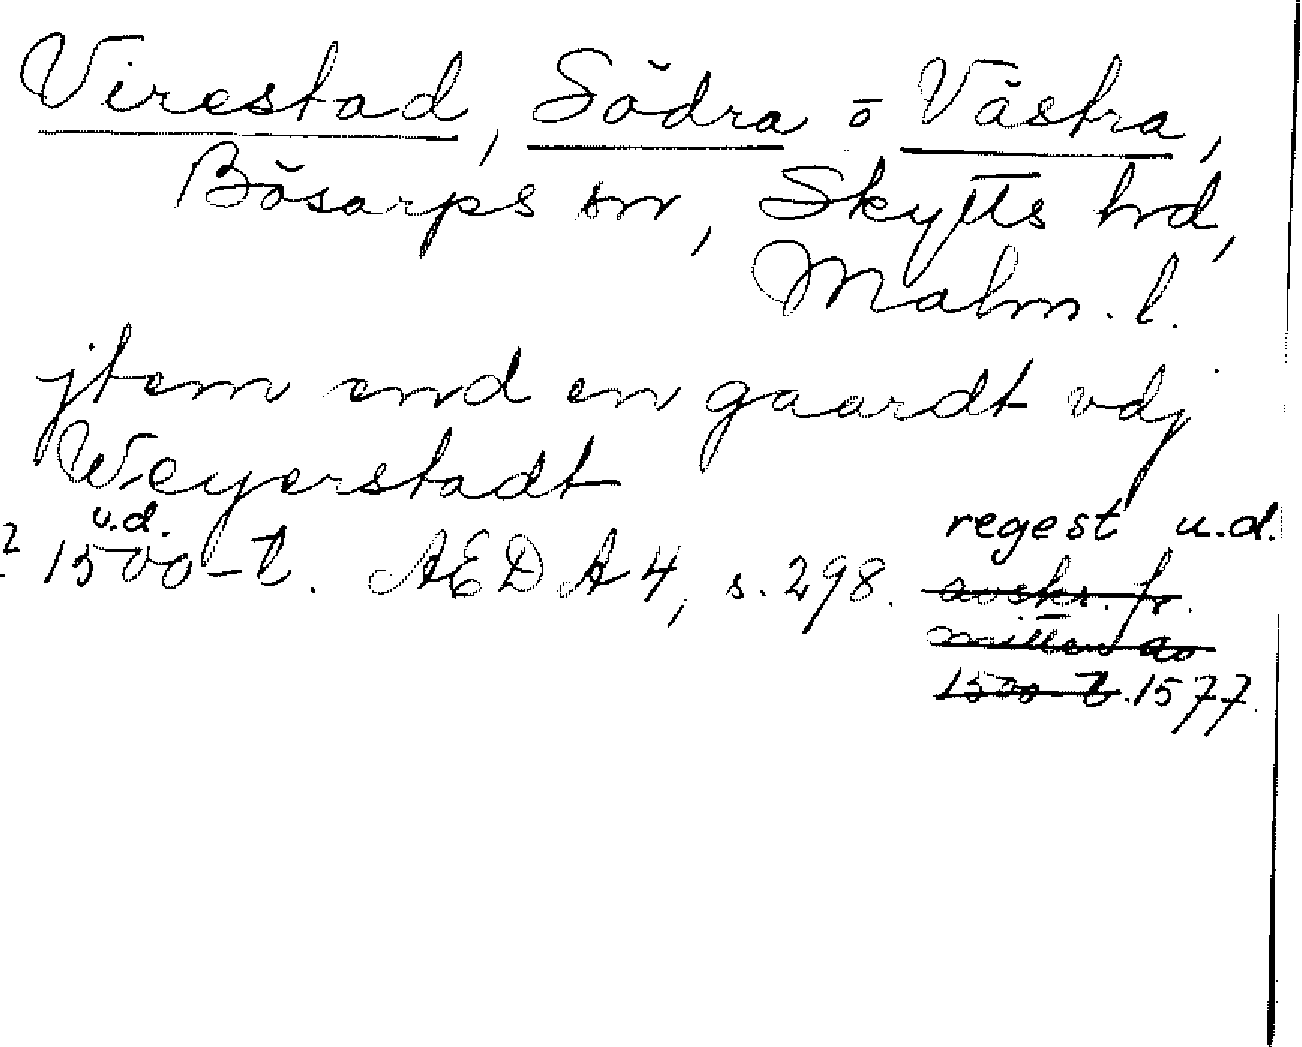 Virestad, Södra o Västra,
Bösarps sn, Skytts hd,
Malm. l.
jtem end en gaardt vdj
Weyerstadt
u.d.
? 1500-t. AEDA 4, s. 298. regest u.d.
avskr. fr.
mitten av
1500-t. 1577.